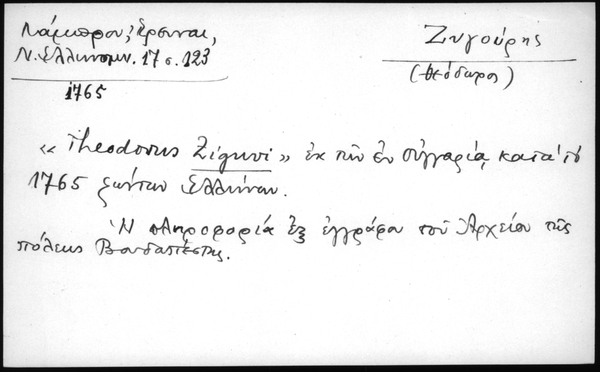 Λάμπρου, Ἔρευναι,
Ν. Ἑλληνομν. 17 σ. 123
1765
Ζυγούρης
(Θεόδωρος)
« Theodorus Ziguri » ἐκ τῶν ἐν Οὐγγαρίᾳ κατὰ τὸ
1765 ζώντων Ἑλλήνων.
Ἡ πληροφορία ἐξ ἐγγράφου τοῦ Ἀρχείου τῆς
πόλεως Βουδαπέστης.